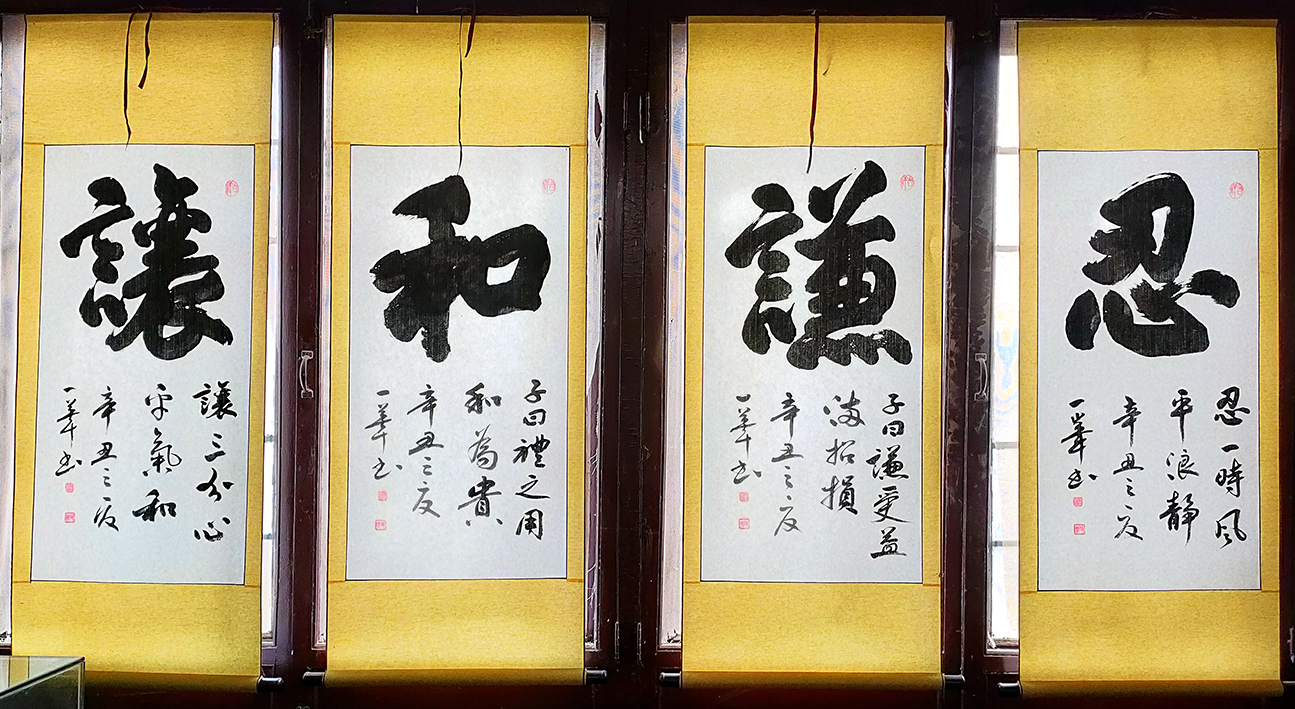 忍
忍一時风
平浪静
辛丑之夏
一书
謙
子曰謙受益
满招損
辛丑之夏
一书
和
子曰禮之用
和為貴
辛丑之夏
一书
讓
讓三分心
平氣和
辛丑之夏
一书